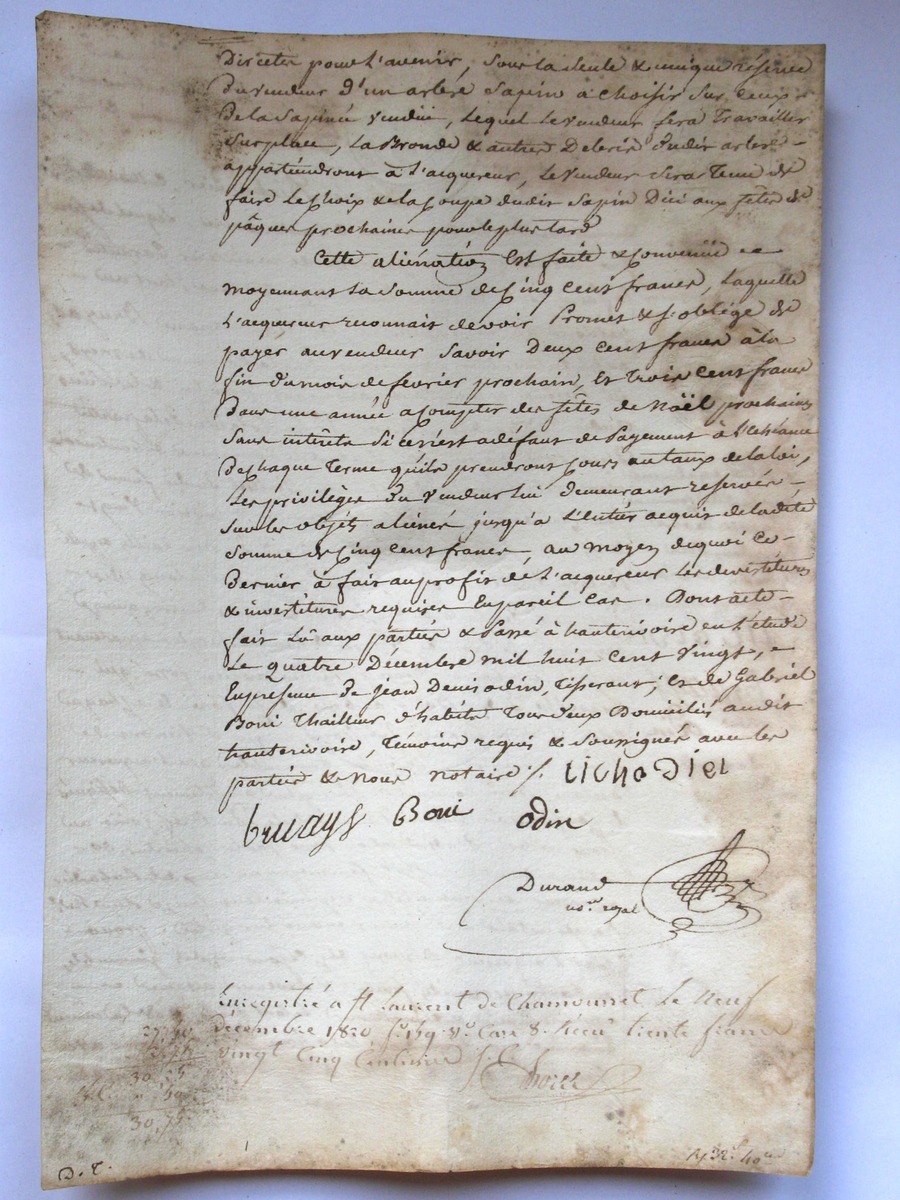 Discetes pour l'avenir, sous la seule & unique réserve
Du vendeur d'un arbre sapin à choisir sur ceux
De la Sapinée vendüe, Lequel Le vendeur fera Travailler
Sur place, La Bronde & autres Debris dudit arbre
appartiendront à L'acquereur, Le vendeur sera Tenu de
faire Le Choix & la Coupe dudit Sapin D'ici aux fêtes de
pâques prochaines pour le plus tard
Cette aliénation Est faite & convenüe
moyennant La Somme de Cinq cent francs, Laquelle
L'acquereur reconnait devoir Promet & s'oblige de
payer au vendeur Savoir Deux Cent francs à la
fin du mois de fevrier prochain, Et Trois Cent francs
Dans une année a compter des fêtes de Noël prochaines
Sans intérêts Si ce n'est a défaut de Payement à l'echéance
De chaque Terme qu'ils prendront Cours au taux de la loi,
Les privilèges du vendeur Lui demeurant reservés
Sur les objets aliénés jusqu'à L'entier acquit de ladite
Somme de Cinq Cent francs, au moyen de quoi Ce
Dernier à fait au profit de L'acquereur Les devestitures
& investitures requises En pareil Cas. Dont acte
fait Lû aux parties & Passé à hauterivoire en l'étude
Le quatre Décembre mil huit Cent vingt,
En présence de jean Denis odin, Tisserant; Et de Gabriel
Boni Thailleur d'habits Tous deux Domiciliés audit
hauterivoire, Témoins requis & Soussignés avec les
parties & Nous notaire ./. Lichadiel
bruays Boni odin
Durand
no.re royal
Enregistré a St Laurent de Chamousset Le Neuf
décembre 1820 fo. 159 Vo. Case 8. Recu trente francs
vingt Cinq Centimes
30,75
D. T.